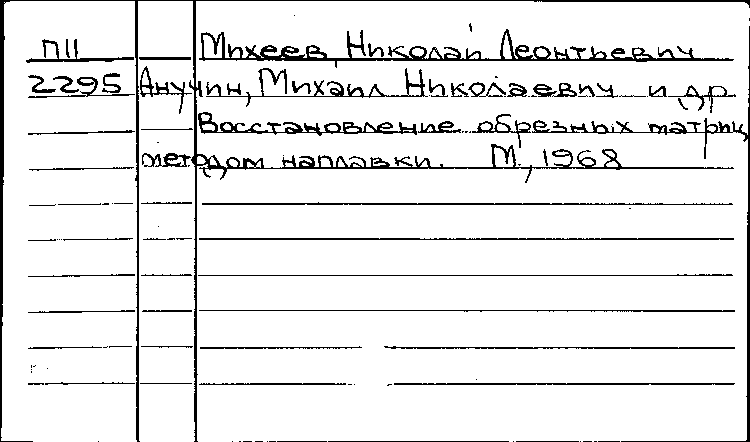 П11 Михеев, Николай Леонтьевич
2295 Анучин, Михаил Николаевич и др
Восстановление обрезных матриц
методом наплавки. М, 1968